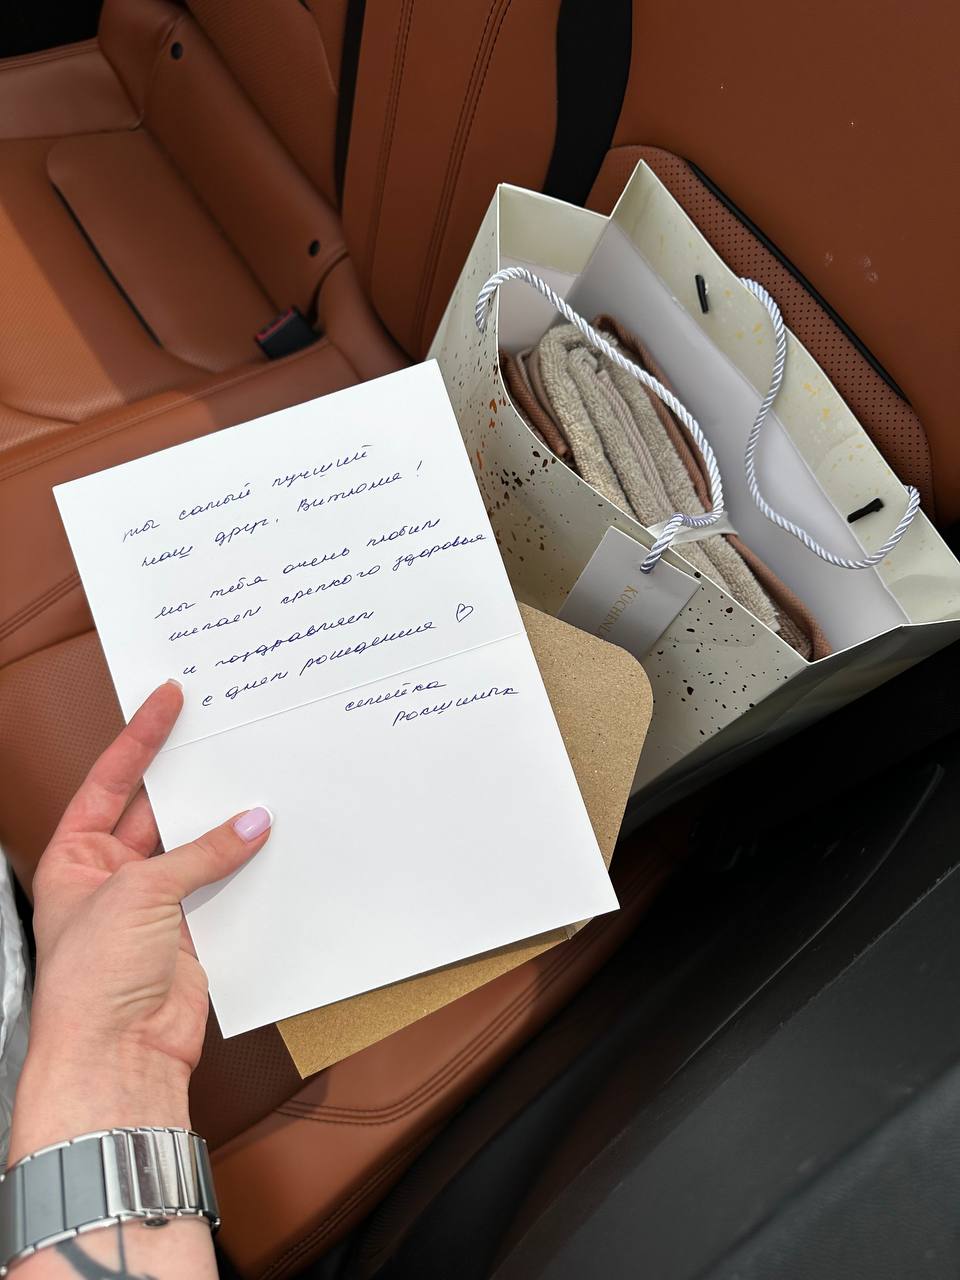 ты самый лучший
наш друг, Витюша!
мы тебя очень любим
желаем крепкого здоровья
и поздравляем
с днем рождения ♡
семейка
KÜCHENL